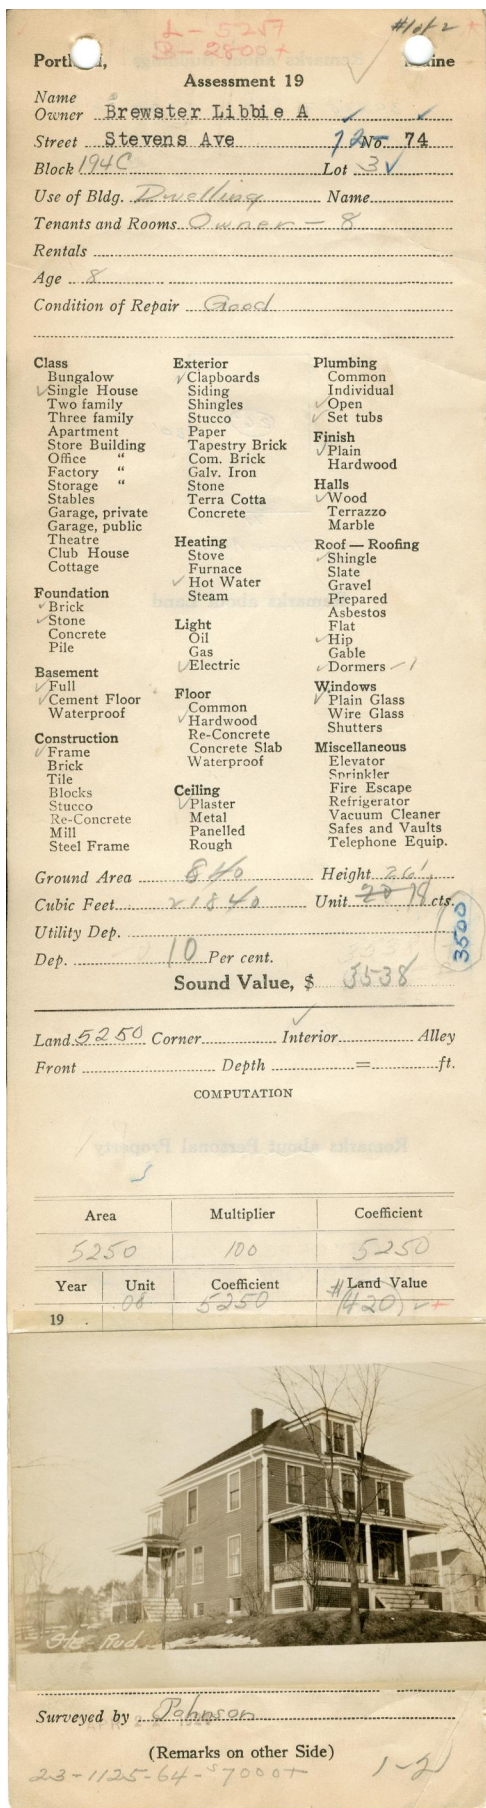 L - 5257
B - 2800 +
#1 of 2 +
Portland, Maine
Assessment 19
Name
Owner Brewster Libbie A
Street Stevens Ave 72 No. 74
Block 194C Lot 3
Use of Bldg. Dwelling Name
Tenants and Rooms Owner - 8
Rentals
Age 8
Condition of Repair Good
Class
Bungalow
✓Single House
Two family
Three family
Apartment
Store Building
Office "
Factory "
Storage "
Stables
Garage, private
Garage, public
Theatre
Club House
Cottage
Foundation
✓Brick
✓Stone
Concrete
Pile
Basement
✓Full
✓Cement Floor
Waterproof
Construction
✓Frame
Brick
Tile
Blocks
Stucco
Re-Concrete
Mill
Steel Frame
Exterior
✓Clapboards
Siding
Shingles
Stucco
Paper
Tapestry Brick
Com. Brick
Galv. Iron
Stone
Terra Cotta
Concrete
Heating
Stove
Furnace
✓Hot Water
Steam
Light
Oil
Gas
✓Electric
Floor
Common
✓Hardwood
Re-Concrete
Concrete Slab
Waterproof
Ceiling
✓Plaster
Metal
Panelled
Rough
Plumbing
Common
Individual
✓Open
✓Set tubs
Finish
✓Plain
Hardwood
Halls
✓Wood
Terrazzo
Marble
Roof — Roofing
✓Shingle
Slate
Gravel
Prepared
Asbestos
Flat
✓Hip
Gable
✓Dormers - 1
Windows
✓Plain Glass
Wire Glass
Shutters
Miscellaneous
Elevator
Sprinkler
Fire Escape
Refrigerator
Vacuum Cleaner
Safes and Vaults
Telephone Equip.
Ground Area 840 Height 26'
Cubic Feet 21840 Unit 20 18 cts.
Utility Dep.
Dep. 10 Per cent.
3500
Sound Value, $ 3538
Land 5250 Corner Interior Alley
Front Depth = ft.
COMPUTATION
Area Multiplier Coefficient
5250 100 5250
Year Unit Coefficient Land Value
19 .08 5250 #(420) +
Ste-Rud.
Surveyed by Johnson
(Remarks on other Side)
23-1125-64-$7000+ 1-21